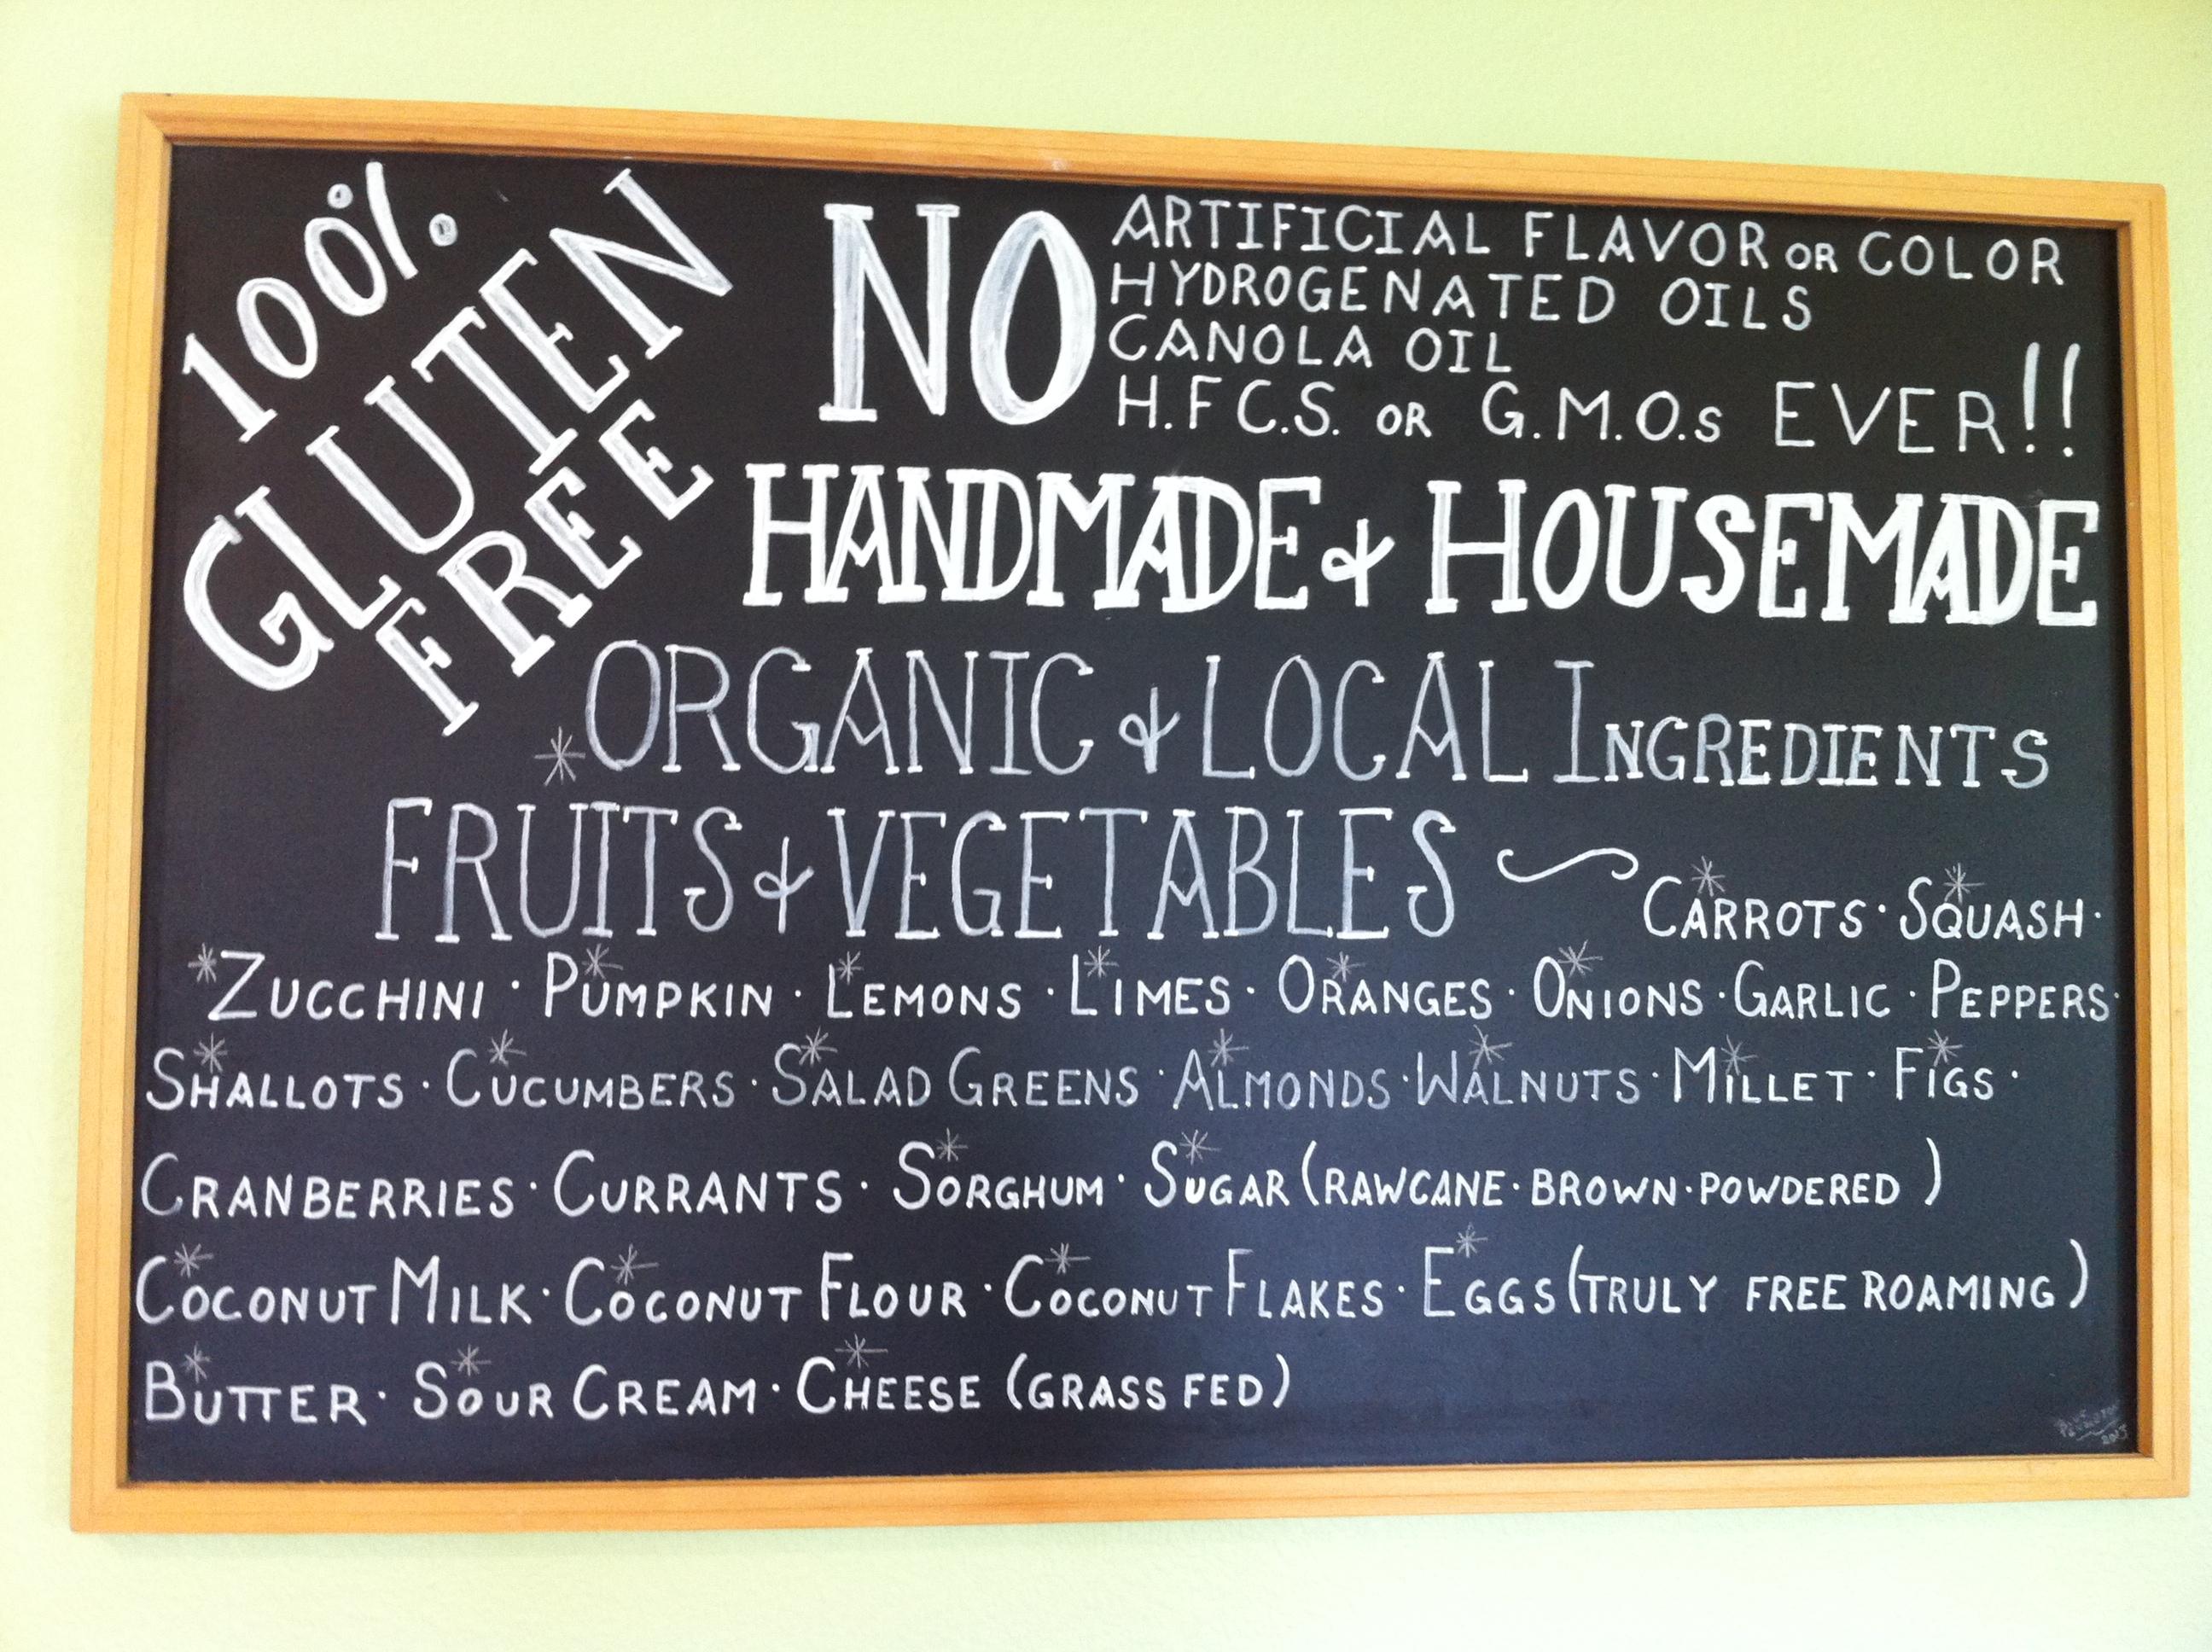 100%
GLUTEN
FREE
NO
ARTIFICIAL FLAVOR OR COLOR
HYDROGENATED OILS
CANOLA OIL
H.F.C.S. OR G.M.O.s EVER!!
HANDMADE & HOUSEMADE
*ORGANIC & LOCAL INGREDIENTS
FRUITS & VEGETABLES ~ *CARROTS · *SQUASH ·
*ZUCCHINI · *PUMPKIN · *LEMONS · *LIMES · *ORANGES · *ONIONS · GARLIC · PEPPERS ·
*SHALLOTS · *CUCUMBERS · *SALAD GREENS · *ALMONDS · *WALNUTS · *MILLET · *FIGS ·
CRANBERRIES · CURRANTS · *SORGHUM · *SUGAR (RAWCANE · BROWN · POWDERED )
*COCONUT MILK · *COCONUT FLOUR · *COCONUT FLAKES · *EGGS (TRULY FREE ROAMING )
*BUTTER · *SOUR CREAM · *CHEESE (GRASS FED)